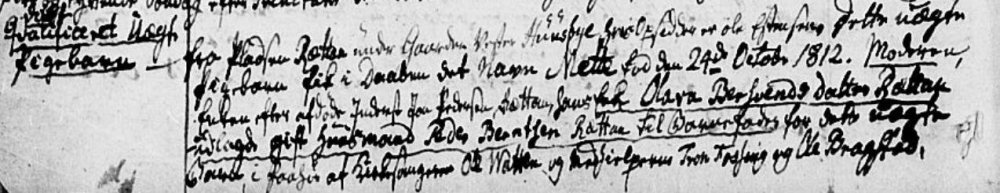 Qvalificeret Uægte
Pigebarn
fra Pladsen Rættan under Gaarden Vester Huusbye, hvis Opsidder er Ole Estensen. Dette uægte
Pigebarn fik i Daaben det Navn Mette, fød den 24de Octobr 1812. Moderen,
Enken efter afdøde Inderst Jon Pedersen Rættan, Olava Bersvends Datter Rættan
udlagde gift Huusmand Peder Berntsen Rættan til Barnefader for dette uægte
Barn, i Paahør af Kirkesangeren Ole Watten og Medhielperne Tron og Ole Bragstad,